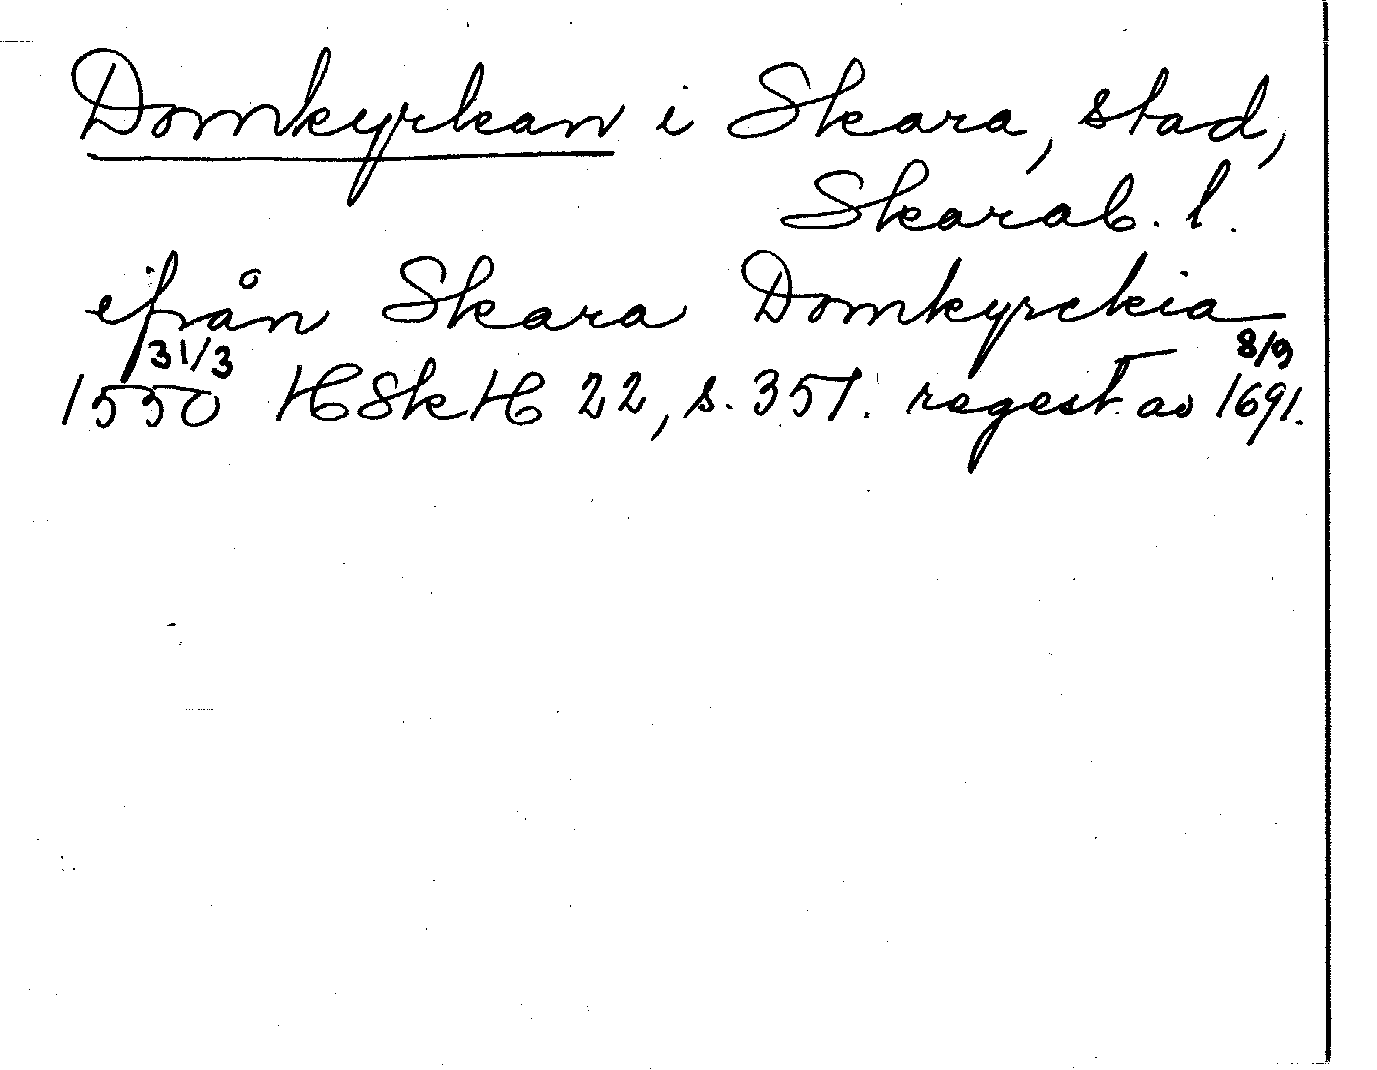 Domkyrkan i Skara, stad,
Skarab. l.
ifrån Skara Domkyrckia
31/3 8/9
1550 HSkH 22, s. 351. regest av 1691.